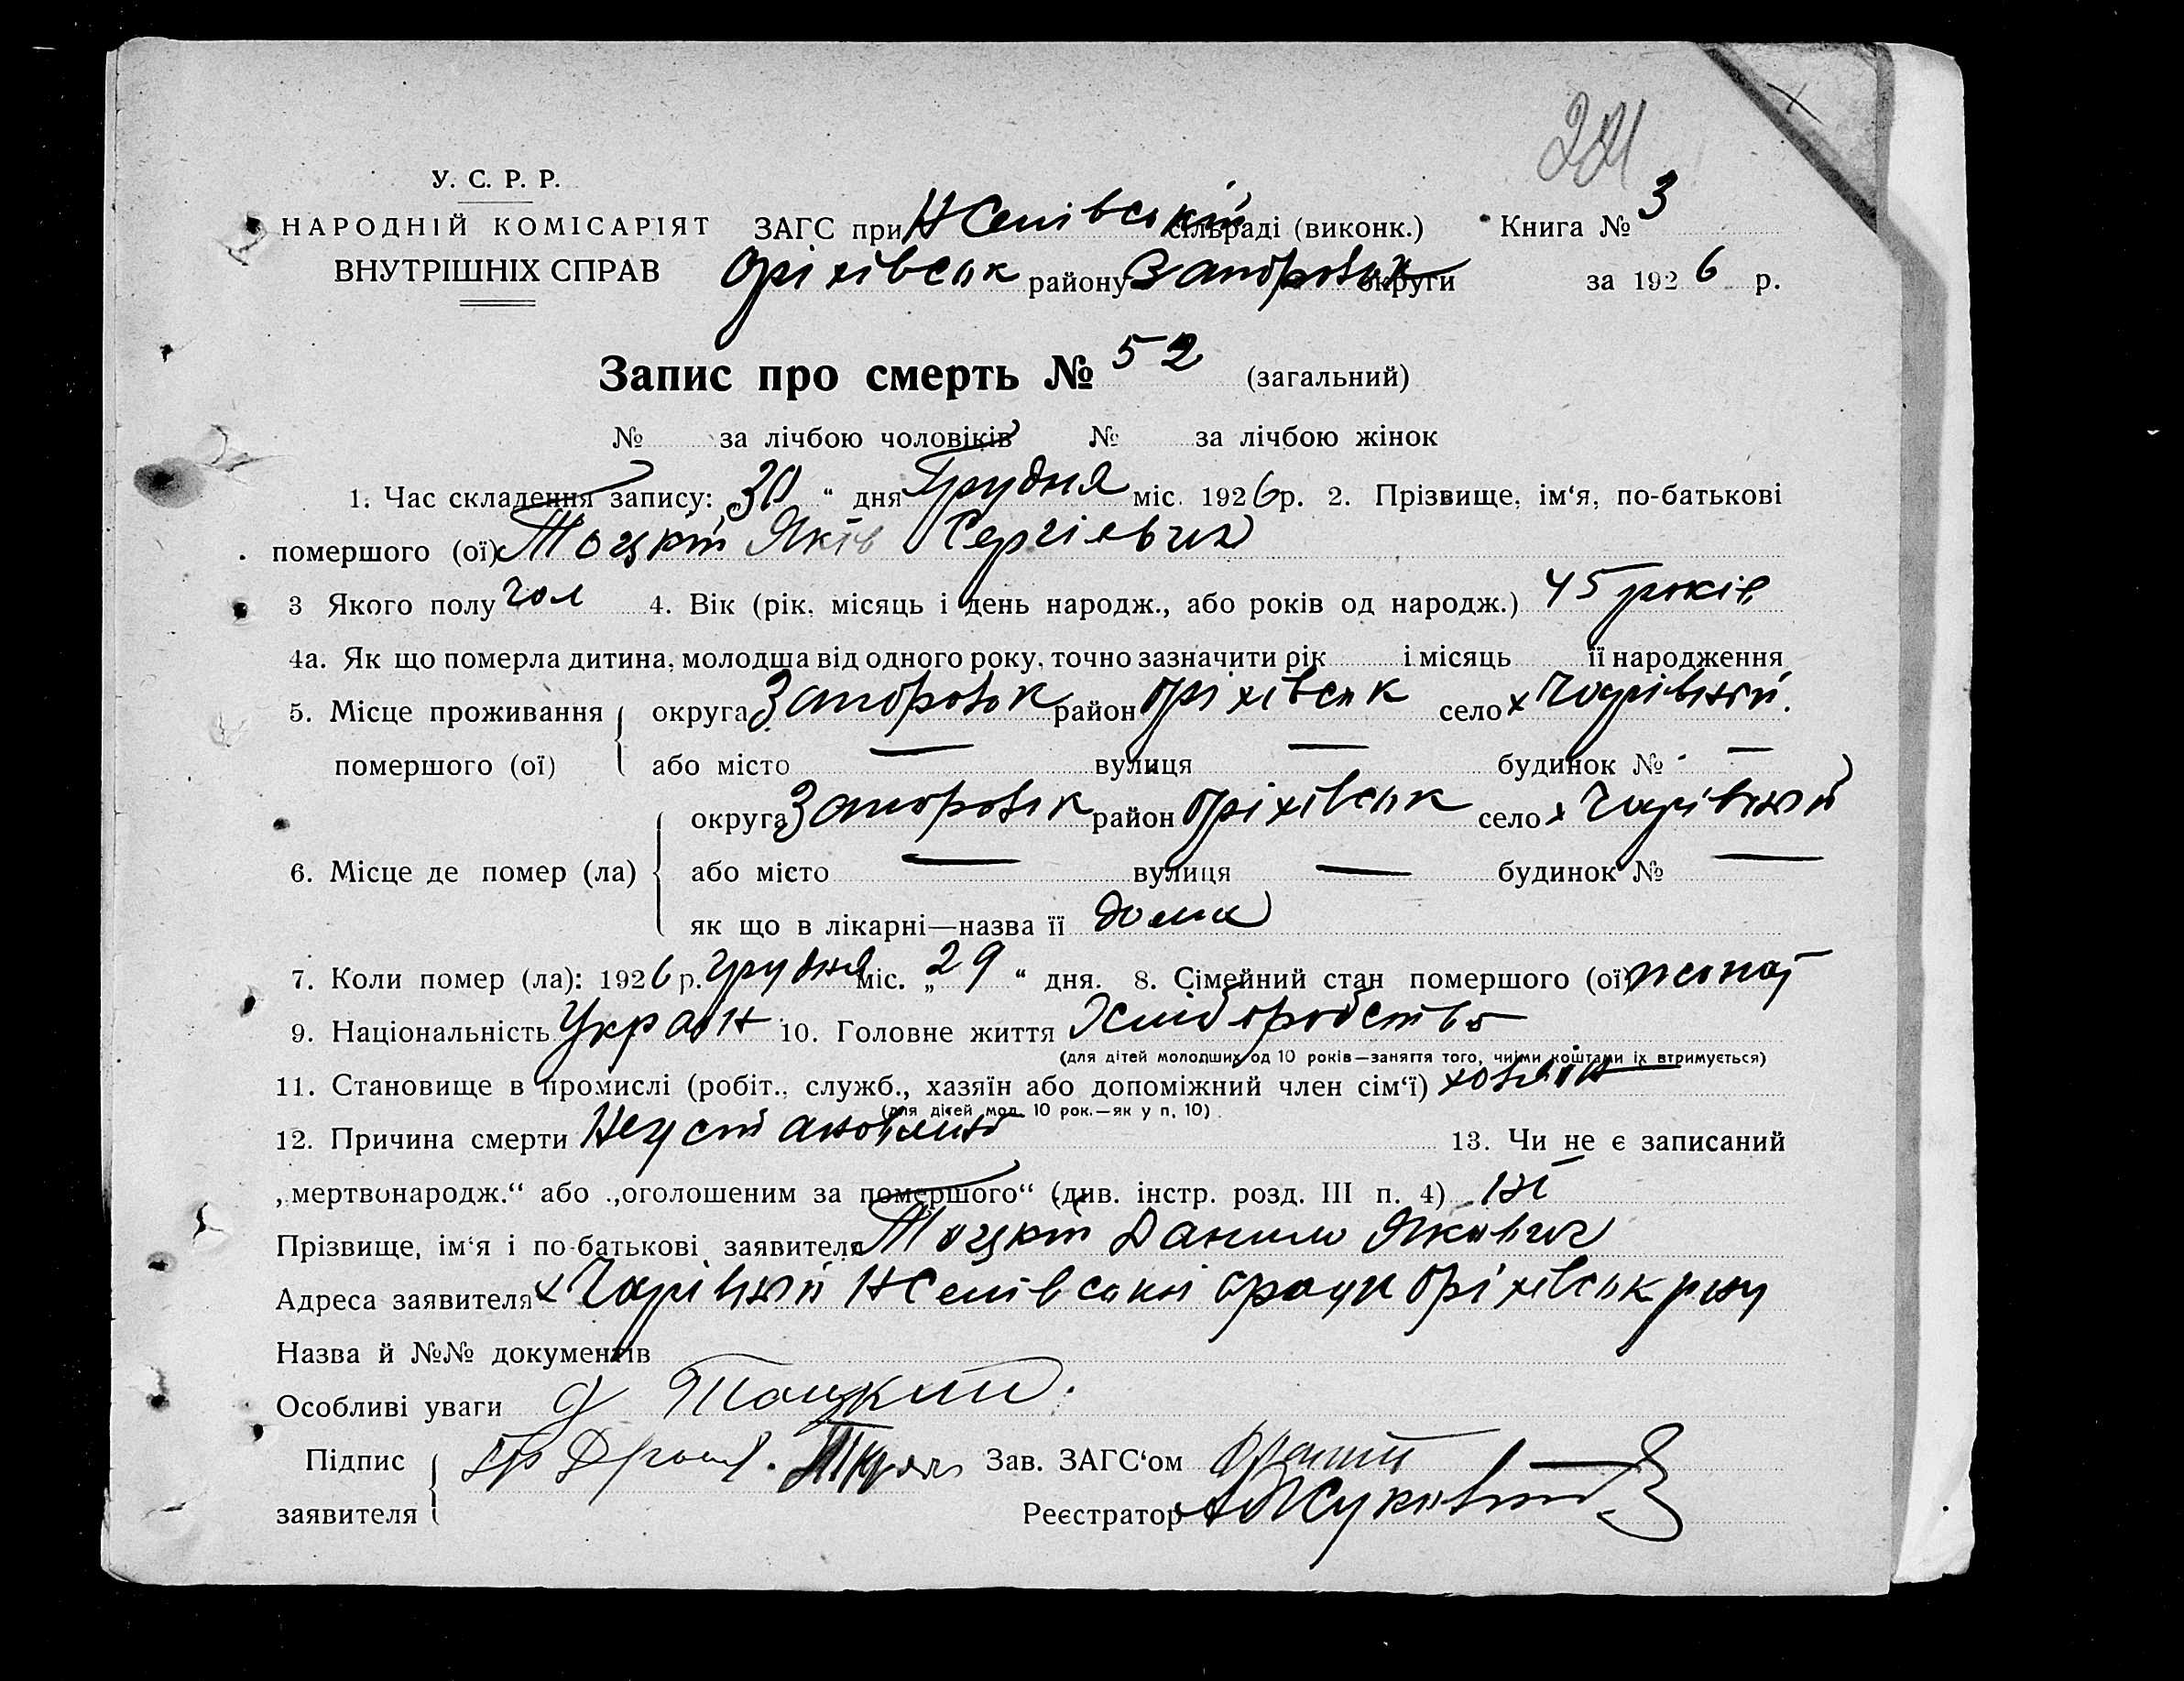 221
У. С. Р. Р.
НАРОДНІЙ КОМІСАРІЯТ ЗАГС при сільраді (виконк.) Книга № 3
ВНУТРІШНІХ СПРАВ Оріхівськ району Запорозьк округи за 1926 р.
Запис про смерть № 52 (загальний)
№ за лічбою чоловіків № за лічбою жінок
1. Час складення запису: 30 “ дня Грудня міс. 1926 р. 2. Прізвище, ім‘я, по-батькові
помершого (ої) Тоцкій Яків Сергієвич
3 Якого полу чол 4. Вік (рік, місяць і день народж., або років од народж.) 45 років
4а. Як що померла дитина, молодша від одного року, точно зазначити рік і місяць її народження
5. Місце проживання округа Запорозьк район Оріхівськ село х Чарівний.
помершого (ої) або місто — вулиця — будинок № —
округа Запорозьк район Оріхівськ село х Чарівний
6. Місце де помер (ла) або місто — вулиця — будинок № —
як що в лікарні—назва її дома
7. Коли помер (ла): 1926 р. грудня міс. „ 29 “ дня. 8. Сімейний стан помершого (ої) жонат
9. Національність Україн 10. Головне життя Хліборобство
(для дітей молодших од 10 років—заняття того, чиїми коштами їх втримується)
11. Становище в промислі (робіт., служб., хазяїн або допоміжний член сім‘ї) хозяїн
(для дітей мол. 10 рок.—як у п. 10)
12. Причина смерти Неустановлино 13. Чи не є записаний
„мертвонародж.“ або „оголошеним за помершого“ (див. інстр. розд. III п. 4) ні
Прізвище, ім‘я і по-батькові заявителя Тоцкій Данило Якович
Адреса заявителя х Чарівний Оріхівськ рну
Назва й №№ документів
Особливі уваги Тоцкий.
Підпис Зав. ЗАГС‘ом
заявителя Реєстратор